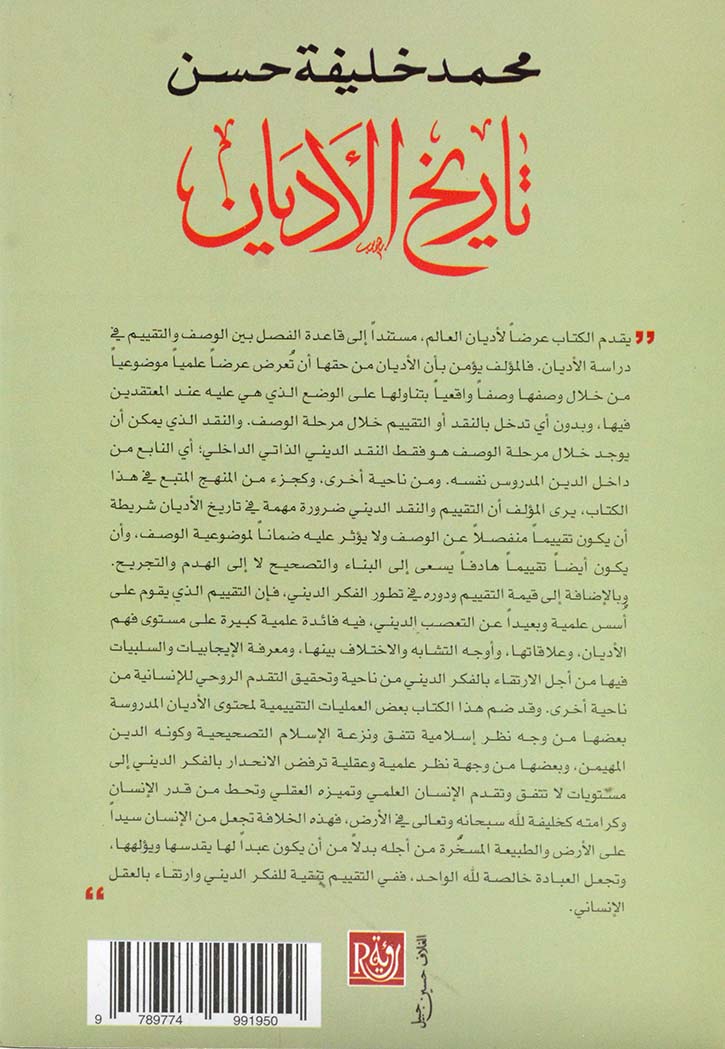 محمد خليفة حسن
تاريخ الأديان
" يقدم الكتاب عرضاً لأديان العالم، مستنداً إلى قاعدة الفصل بين الوصف والتقييم في
دراسة الأديان. فالمؤلف يؤمن بأن الأديان من حقها أن تُعرض عرضاً علمياً موضوعياً
من خلال وصفها وصفاً واقعياً بتناولها على الوضع الذي هي عليه عند المعتقدين
فيها، وبدون أي تدخل بالنقد أو التقييم خلال مرحلة الوصف. والنقد الذي يمكن أن
يوجد خلال مرحلة الوصف هو فقط النقد الديني الذاتي الداخلي؛ أي النابع من
داخل الدين المدروس نفسه. ومن ناحية أخرى، وكجزء من المنهج المتبع في هذا
الكتاب، يرى المؤلف أن التقييم والنقد الديني ضرورة مهمة في تاريخ الأديان شريطة
أن يكون تقييماً منفصلاً عن الوصف ولا يؤثر عليه ضماناً لموضوعية الوصف، وأن
يكون أيضاً تقييماً هادفاً يسعى إلى البناء والتصحيح لا إلى الهدم والتجريح.
وبالإضافة إلى قيمة التقييم ودوره في تطور الفكر الديني، فإن التقييم الذي يقوم على
أسس علمية وبعيداً عن التعصب الديني، فيه فائدة علمية كبيرة على مستوى فهم
الأديان، وعلاقاتها، وأوجه التشابه والاختلاف بينها، ومعرفة الإيجابيات والسلبيات
فيها من أجل الارتقاء بالفكر الديني من ناحية وتحقيق التقدم الروحي للإنسانية من
ناحية أخرى. وقد ضم هذا الكتاب بعض العمليات التقييمية لمحتوى الأديان المدروسة
بعضها من وجه نظر إسلامية تتفق ونزعة الإسلام التصحيحية وكونه الدين
المهيمن، وبعضها من وجهة نظر علمية وعقلية ترفض الانحدار بالفكر الديني إلى
مستويات لا تتفق وتقدم الإنسان العلمي وتميزه العقلي وتحط من قدر الإنسان
وكرامته كخليفة لله سبحانه وتعالى في الأرض، فهذه الخلافة تجعل من الإنسان سيداً
على الأرض والطبيعة المسخّرة من أجله بدلاً من أن يكون عبداً لها يقدسها ويؤلهها،
وتجعل العبادة خالصة لله الواحد، ففي التقييم تنقية للفكر الديني وارتقاء بالعقل
الإنساني. "
رؤية R
الغلاف حسين جبيل
9 789774 991950